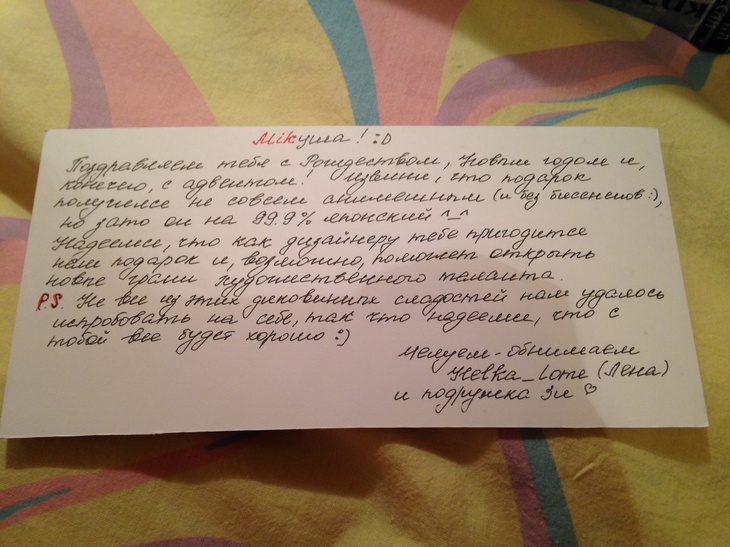 Mikуша! :D
Поздравляем тебя с Рождеством, Новым годом и,
конечно, с адвентом! Извини, что подарок
получился не совсем анимешным (и без бисёненов :),
но зато он на 99.9% японский ^_^
Надеемся, что как дизайнеру тебе пригодится
наш подарок и, возможно, поможет открыть
новые грани художественного таланта.
P.S. Не все из этих диковинных сладостей нам удалось
испробовать на себе, так что надеемся, что с
тобой все будет хорошо :)
Целуем-обнимаем
Helka_Lome (Лена)
и подружка Эли ♡